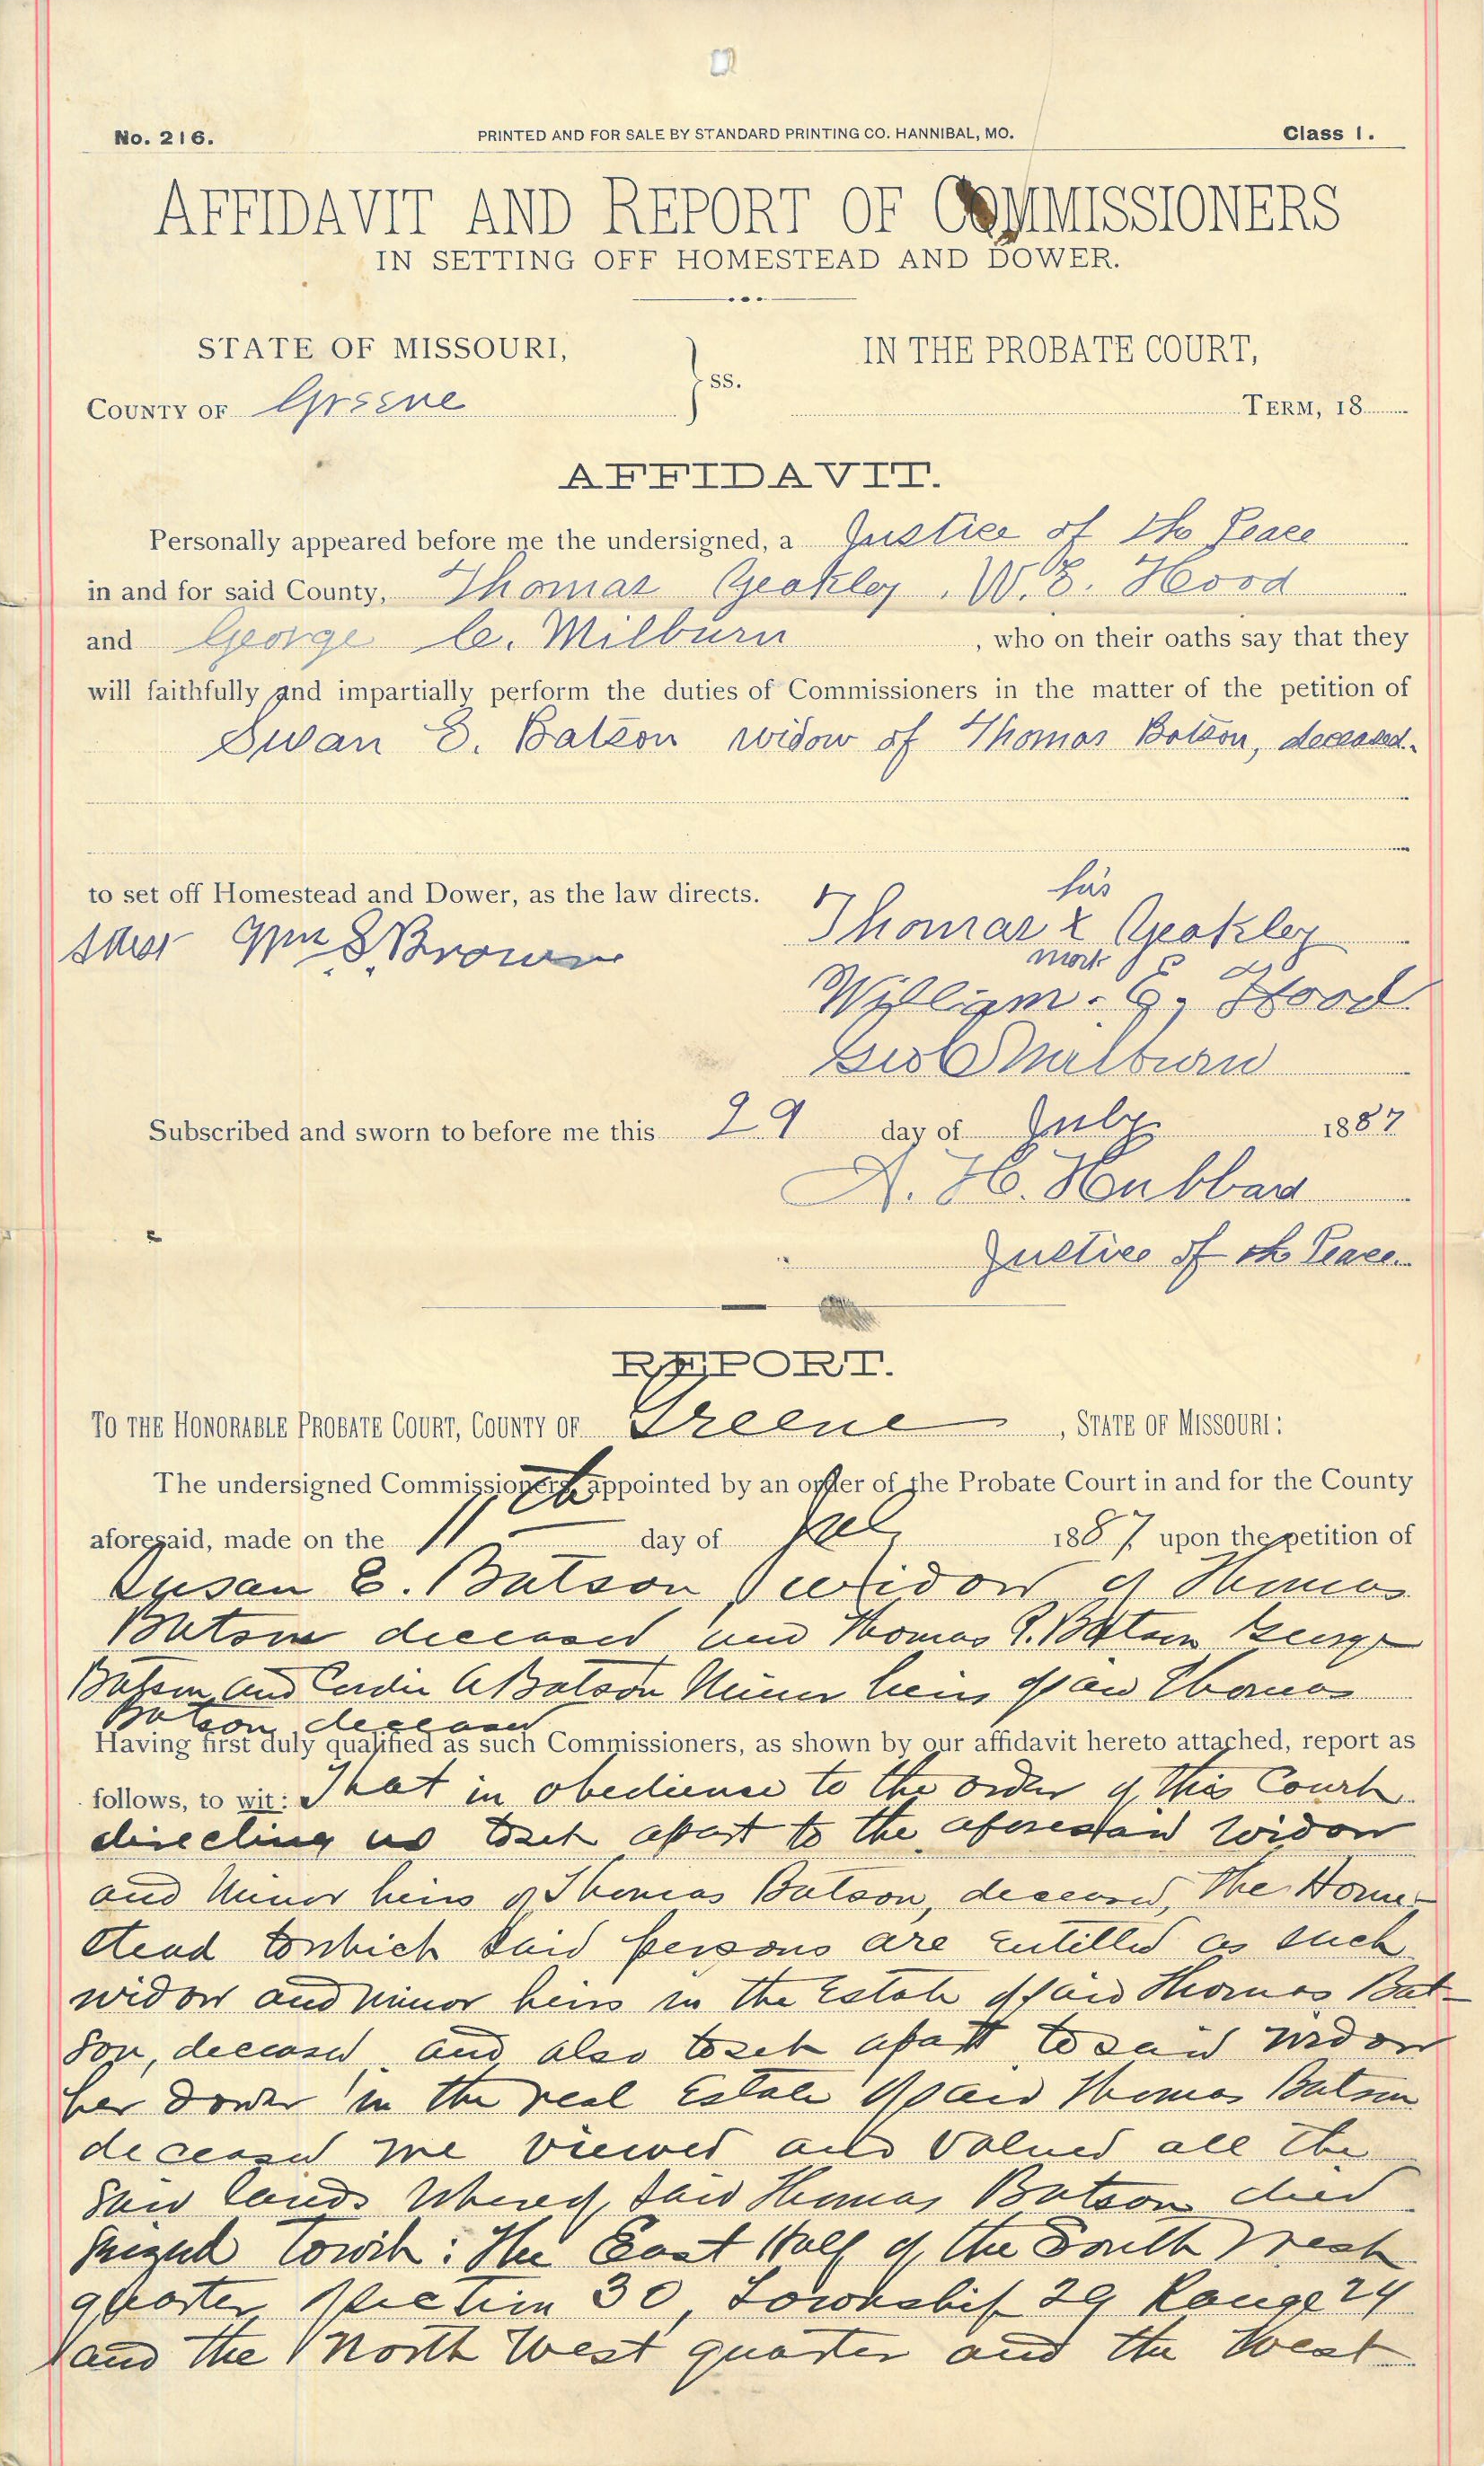 No. 216.
PRINTED AND FOR SALE BY STANDARD PRINTING CO. HANNIBAL, MO.
Class 1.
AFFIDAVIT AND REPORT OF COMMISSIONERS
IN SETTING OFF HOMESTEAD AND DOWER.
STATE OF MISSOURI,
IN THE PROBATE COURT,
ss.
COUNTY OF Greene
TERM, 18
AFFIDAVIT.
Personally appeared before me the undersigned, a Justice of the Peace
in and for said County, Thomas Yeakley, W. E. Hood
and George C. Milburn, who on their oaths say that they
will faithfully and impartially perform the duties of Commissioners in the matter of the petition of
Susan E. Batson widow of Thomas Batson, deceased.
to set off Homestead and Dower, as the law directs.
his
Thomas x Yeakley
mark
attest Wm S. Brown
William. E. Hood
Geo C Milburn
Subscribed and sworn to before me this 29 day of July 1887
A. H. Hubbard
Justice of the Peace.
REPORT.
TO THE HONORABLE PROBATE COURT, COUNTY OF Greene, STATE OF MISSOURI:
The undersigned Commissioners, appointed by an order of the Probate Court in and for the County
aforesaid, made on the 11th day of 1887, upon the petition of
Susan E. Batson, widow of Thomas
Batson deceased and Thomas Batson George
Batson and A Batson Minor heirs of said Thomas
Batson deceased
Having first duly qualified as such Commissioners, as shown by our affidavit hereto attached, report as
follows, to wit: That in obedience to the order of this Court
directing us to set apart to the aforesaid widow
and minor heirs of Thomas Batson, deceased, the Home-
stead to which said persons are entitled as such
widow and minor heirs in the Estate of said Thomas Bat-
son, deceased, and also to set apart to said widow
her dower in the real Estate of said Thomas Batson
deceased we viewed and valued all the
said lands whereof, said Thomas Batson died
seized towit: The East Half of the South West
quarter Section 30, Township 29 Range 24
and the North West quarter and the West